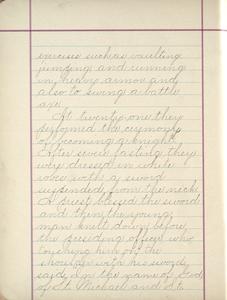 exercise such as vaulting
jumping and running
in heavy armor and
also to swing a battle
axe.
At twenty-one they
performed the ceremony
of becoming a knight.
After seven fasting they
were dressed in white
robe with a sword
suspended from the neck
A priest blessed the sword
and then the young
man knelt down before
the presiding officer who
touching him on the
shoulder with his sword,
said, in the name of God
of St. Michael and St.